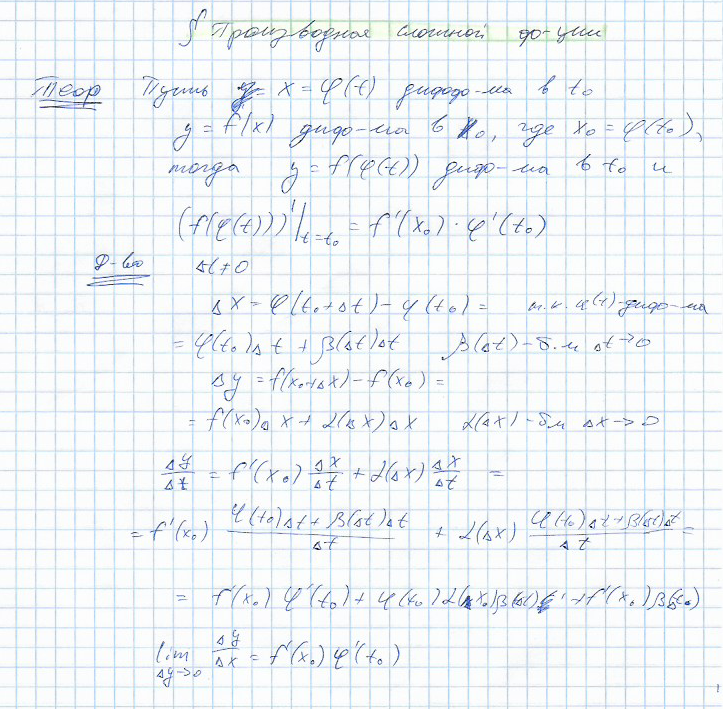 § Производная сложной ф-ции
Теор Пусть x = φ(t) дифф-ма в t₀
y = f(x) дифф-ма в x₀, где x₀ = φ(t₀),
тогда y = f(φ(t)) дифф-ма в t₀ и
(f(φ(t)))'|t=t₀ = f'(x₀) · φ'(t₀)
Д-во Δt ≠ 0
Δx = φ(t₀+Δt) − φ(t₀) = т.к. φ(t)-дифф-ма
= φ(t₀)Δt + β(Δt)Δt β(Δt) − б.м Δt→0
Δy = f(x₀+Δx) − f(x₀) =
= f(x₀)Δx + α(Δx)Δx α(Δx) − бм Δx→0
Δy/Δt = f'(x₀) Δx/Δt + α(Δx) Δx/Δt =
= f'(x₀) (φ(t₀)Δt + β(Δt)Δt)/Δt + α(Δx) (φ(t₀)Δt + β(Δt)Δt)/Δt =
= f'(x₀) φ'(t₀) + φ(t₀) + f'(x₀)
lim Δy→0 Δy/Δx = f'(x₀) φ'(t₀)